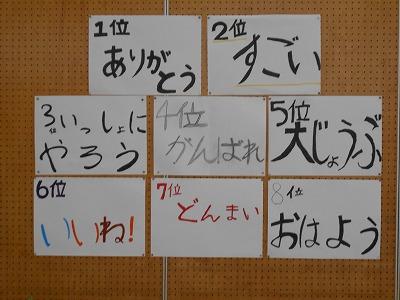 1位
ありが
とう
2位
すごい
3位
いっしょに
やろう
4位
がんばれ
5位
大じょうぶ
6位
いいね!
7位
どんまい
8位
おはよう